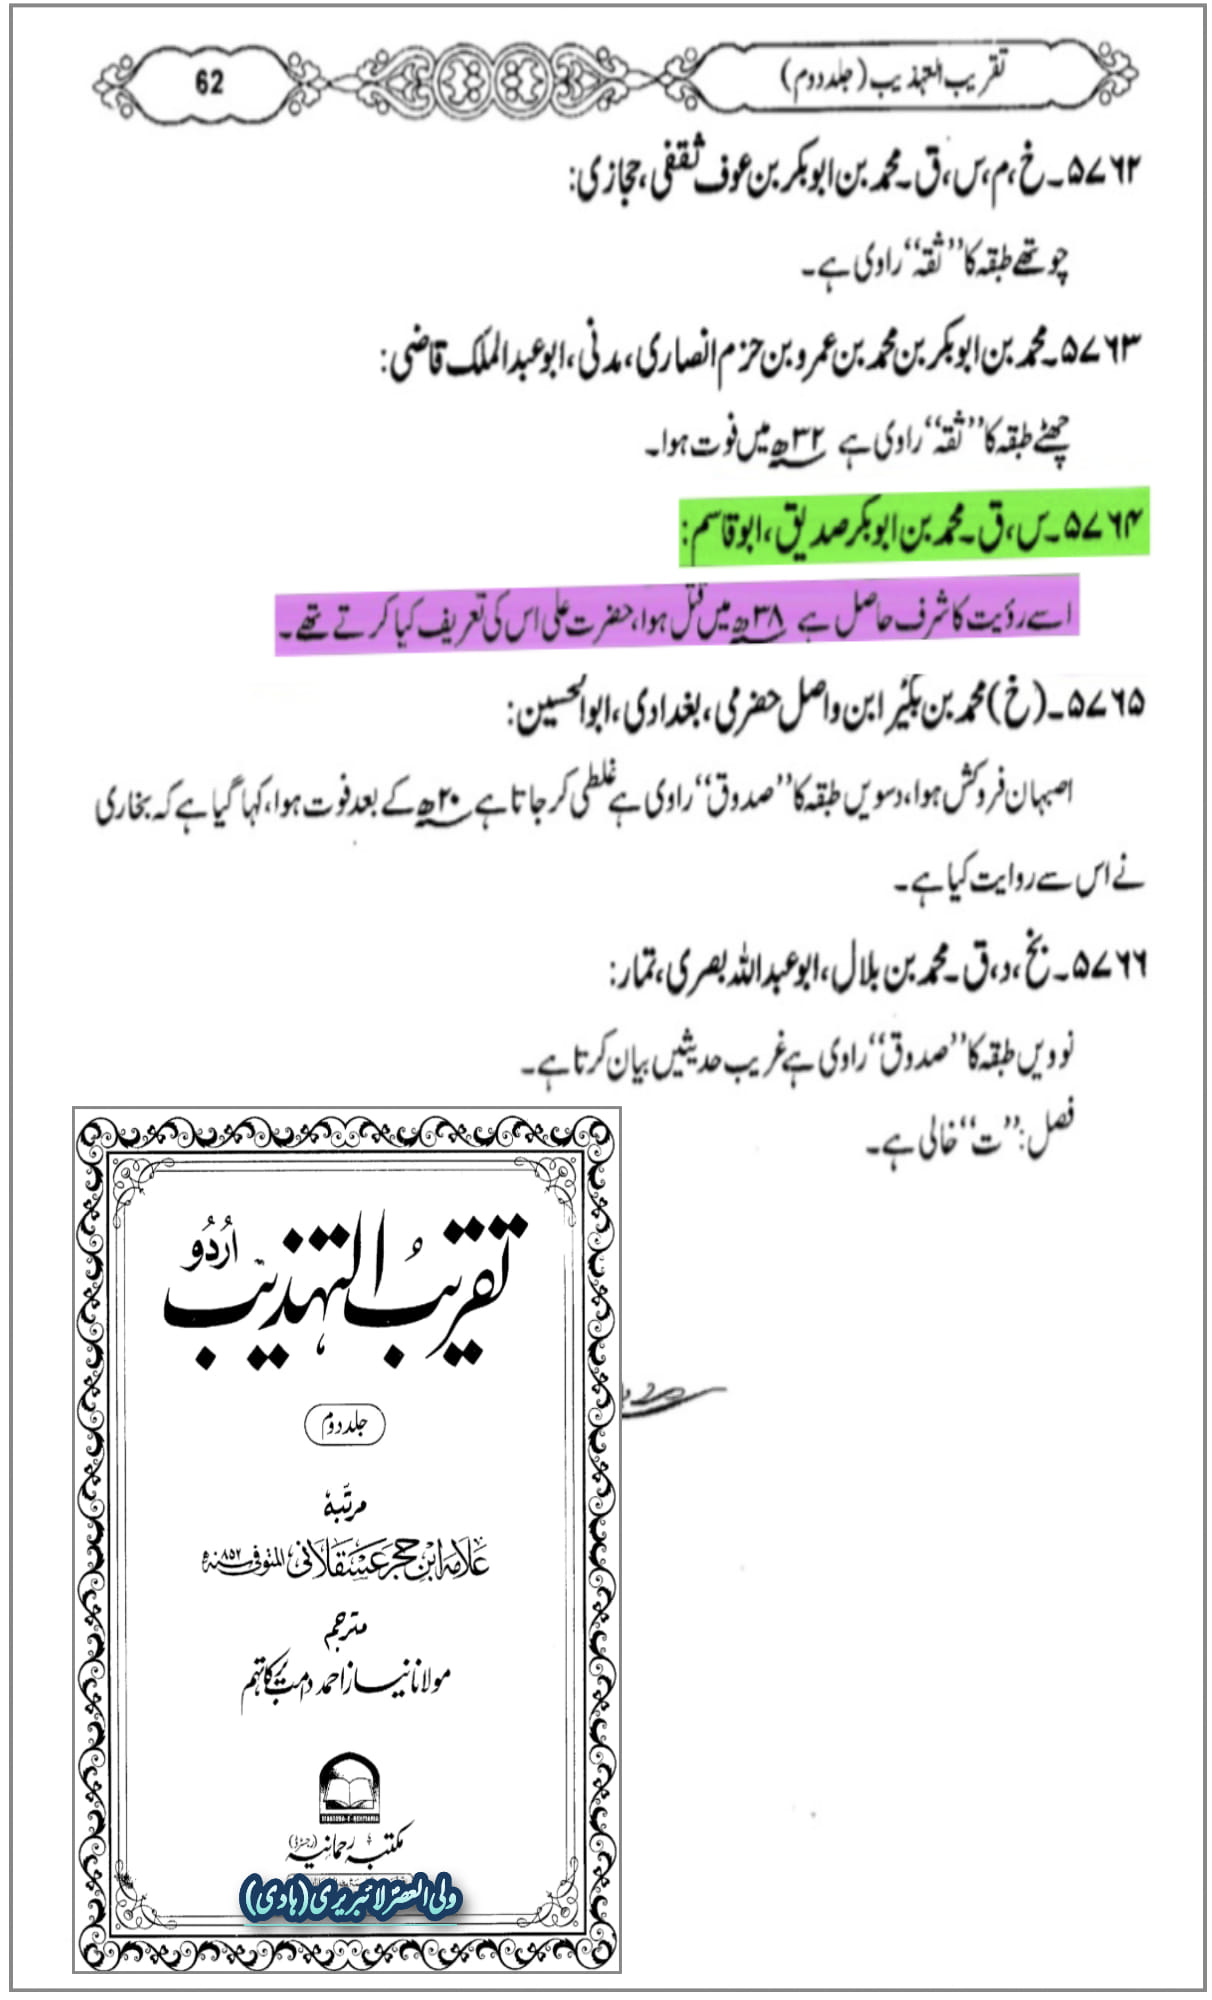 تقریب التہذیب (جلد دوم)
62
۵۷۶۲۔ خ، م، س، ق۔ محمد بن ابوبکر بن عوف ثقفی، حجازی:
چوتھے طبقہ کا ’’ثقہ‘‘ راوی ہے۔
۵۷۶۳۔ محمد بن ابوبکر بن محمد بن عمرو بن حزم انصاری، مدنی، ابوعبدالملک قاضی:
چھٹے طبقہ کا ’’ثقہ‘‘ راوی ہے ۳۲ھ میں فوت ہوا۔
۵۷۶۴۔ س، ق۔ محمد بن ابوبکر صدیق، ابوقاسم:
اسے رؤیت کا شرف حاصل ہے ۳۸ھ میں قتل ہوا، حضرت علی اس کی تعریف کیا کرتے تھے۔
۵۷۶۵۔ (خ) محمد بن بکَیْر ابن واصل حضرمی، بغدادی، ابوالحسین:
اصبہان فروکش ہوا، دسویں طبقہ کا ’’صدوق‘‘ راوی ہے غلطی کر جاتا ہے ۲۰ھ کے بعد فوت ہوا، کہا گیا ہے کہ بخاری
نے اس سے روایت کیا ہے۔
۵۷۶۶۔ بخ، د، ق۔ محمد بن بلال، ابوعبداللہ بصری، تمار:
نوویں طبقہ کا ’’صدوق‘‘ راوی ہے غریب حدیثیں بیان کرتا ہے۔
فصل: ’’ت‘‘ خالی ہے۔
تقریبُ التہذیب اُردُو
جلد دوم
مرتبہ
علامہ ابن حجر عسقلانی المتوفی ۸۵۲ھ
مترجم
مولانا نیاز احمد دامت برکاتہم
MAKTABA-E-REHMANIA
مکتبہ رحمانیہ (رجسٹرڈ)
ولی العصرؑ لائبریری (ہادی)